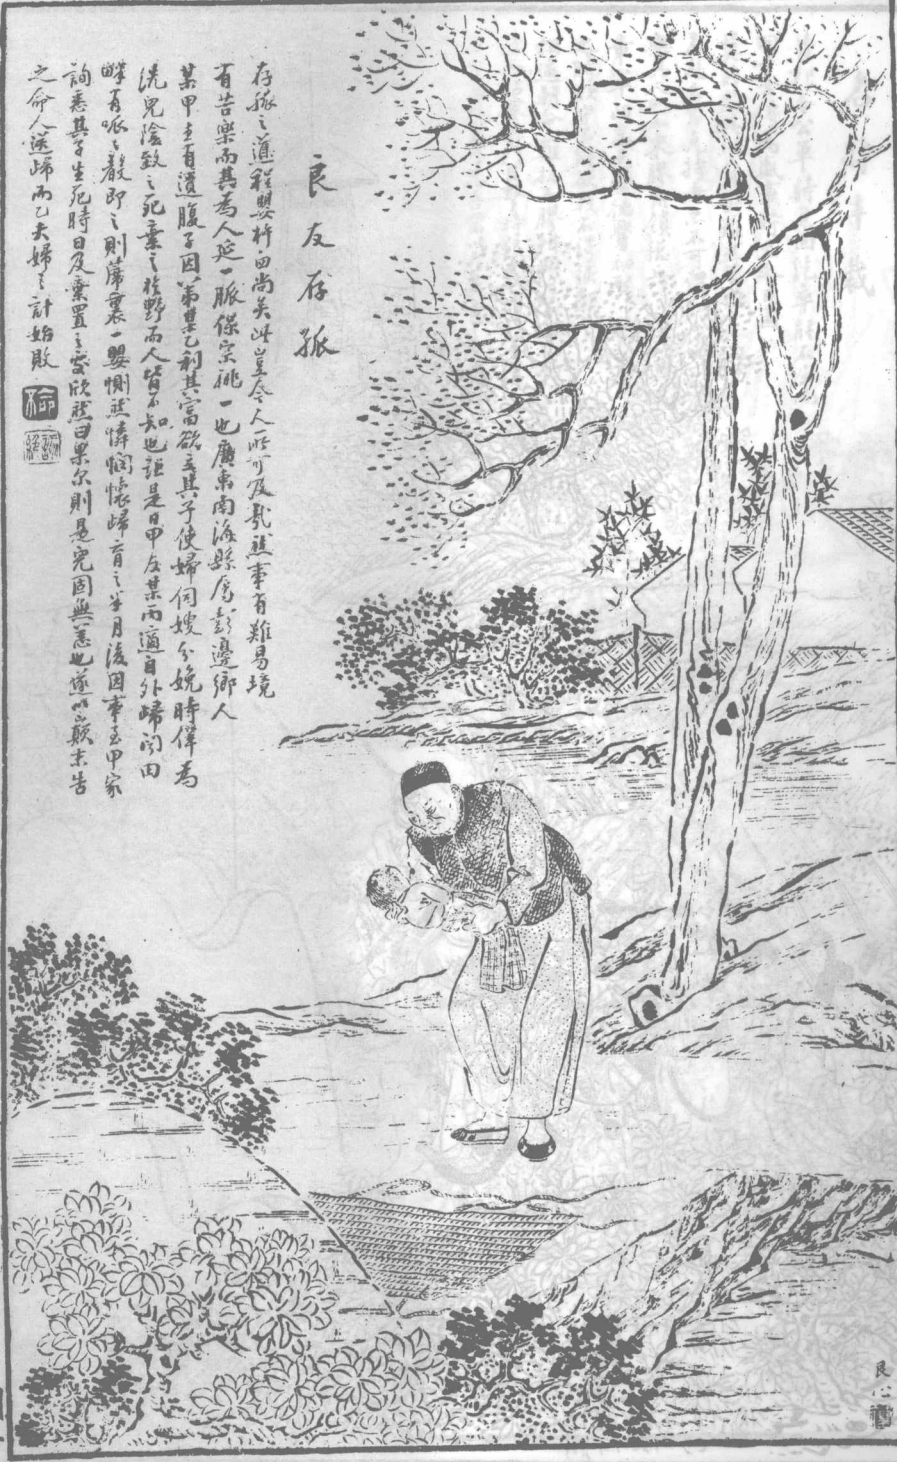 良友存孤
存孤之道程嬰杵臼尚矣此豈今人所可及哉然事有難易境
有苦樂而其為人延一脈保宗祧一也廣東南海縣屬彭邊鄉人
某甲生有遺腹子因弟某乙利其富欲立其子使婦伺嫂分娩時僞為
洗兒陰致之死棄之於野而人皆不知也詎是日甲友某丙適自外歸聞田
畔有呱呱聲即之則蓆裹一嬰惻然憐憫懷歸育之半月後因事至甲家
詢悉其子生死時日及棄置之處欣然曰果尔則是兒固無恙也遂以顛末告
之命人送歸而乙夫婦之計始敗
艮心